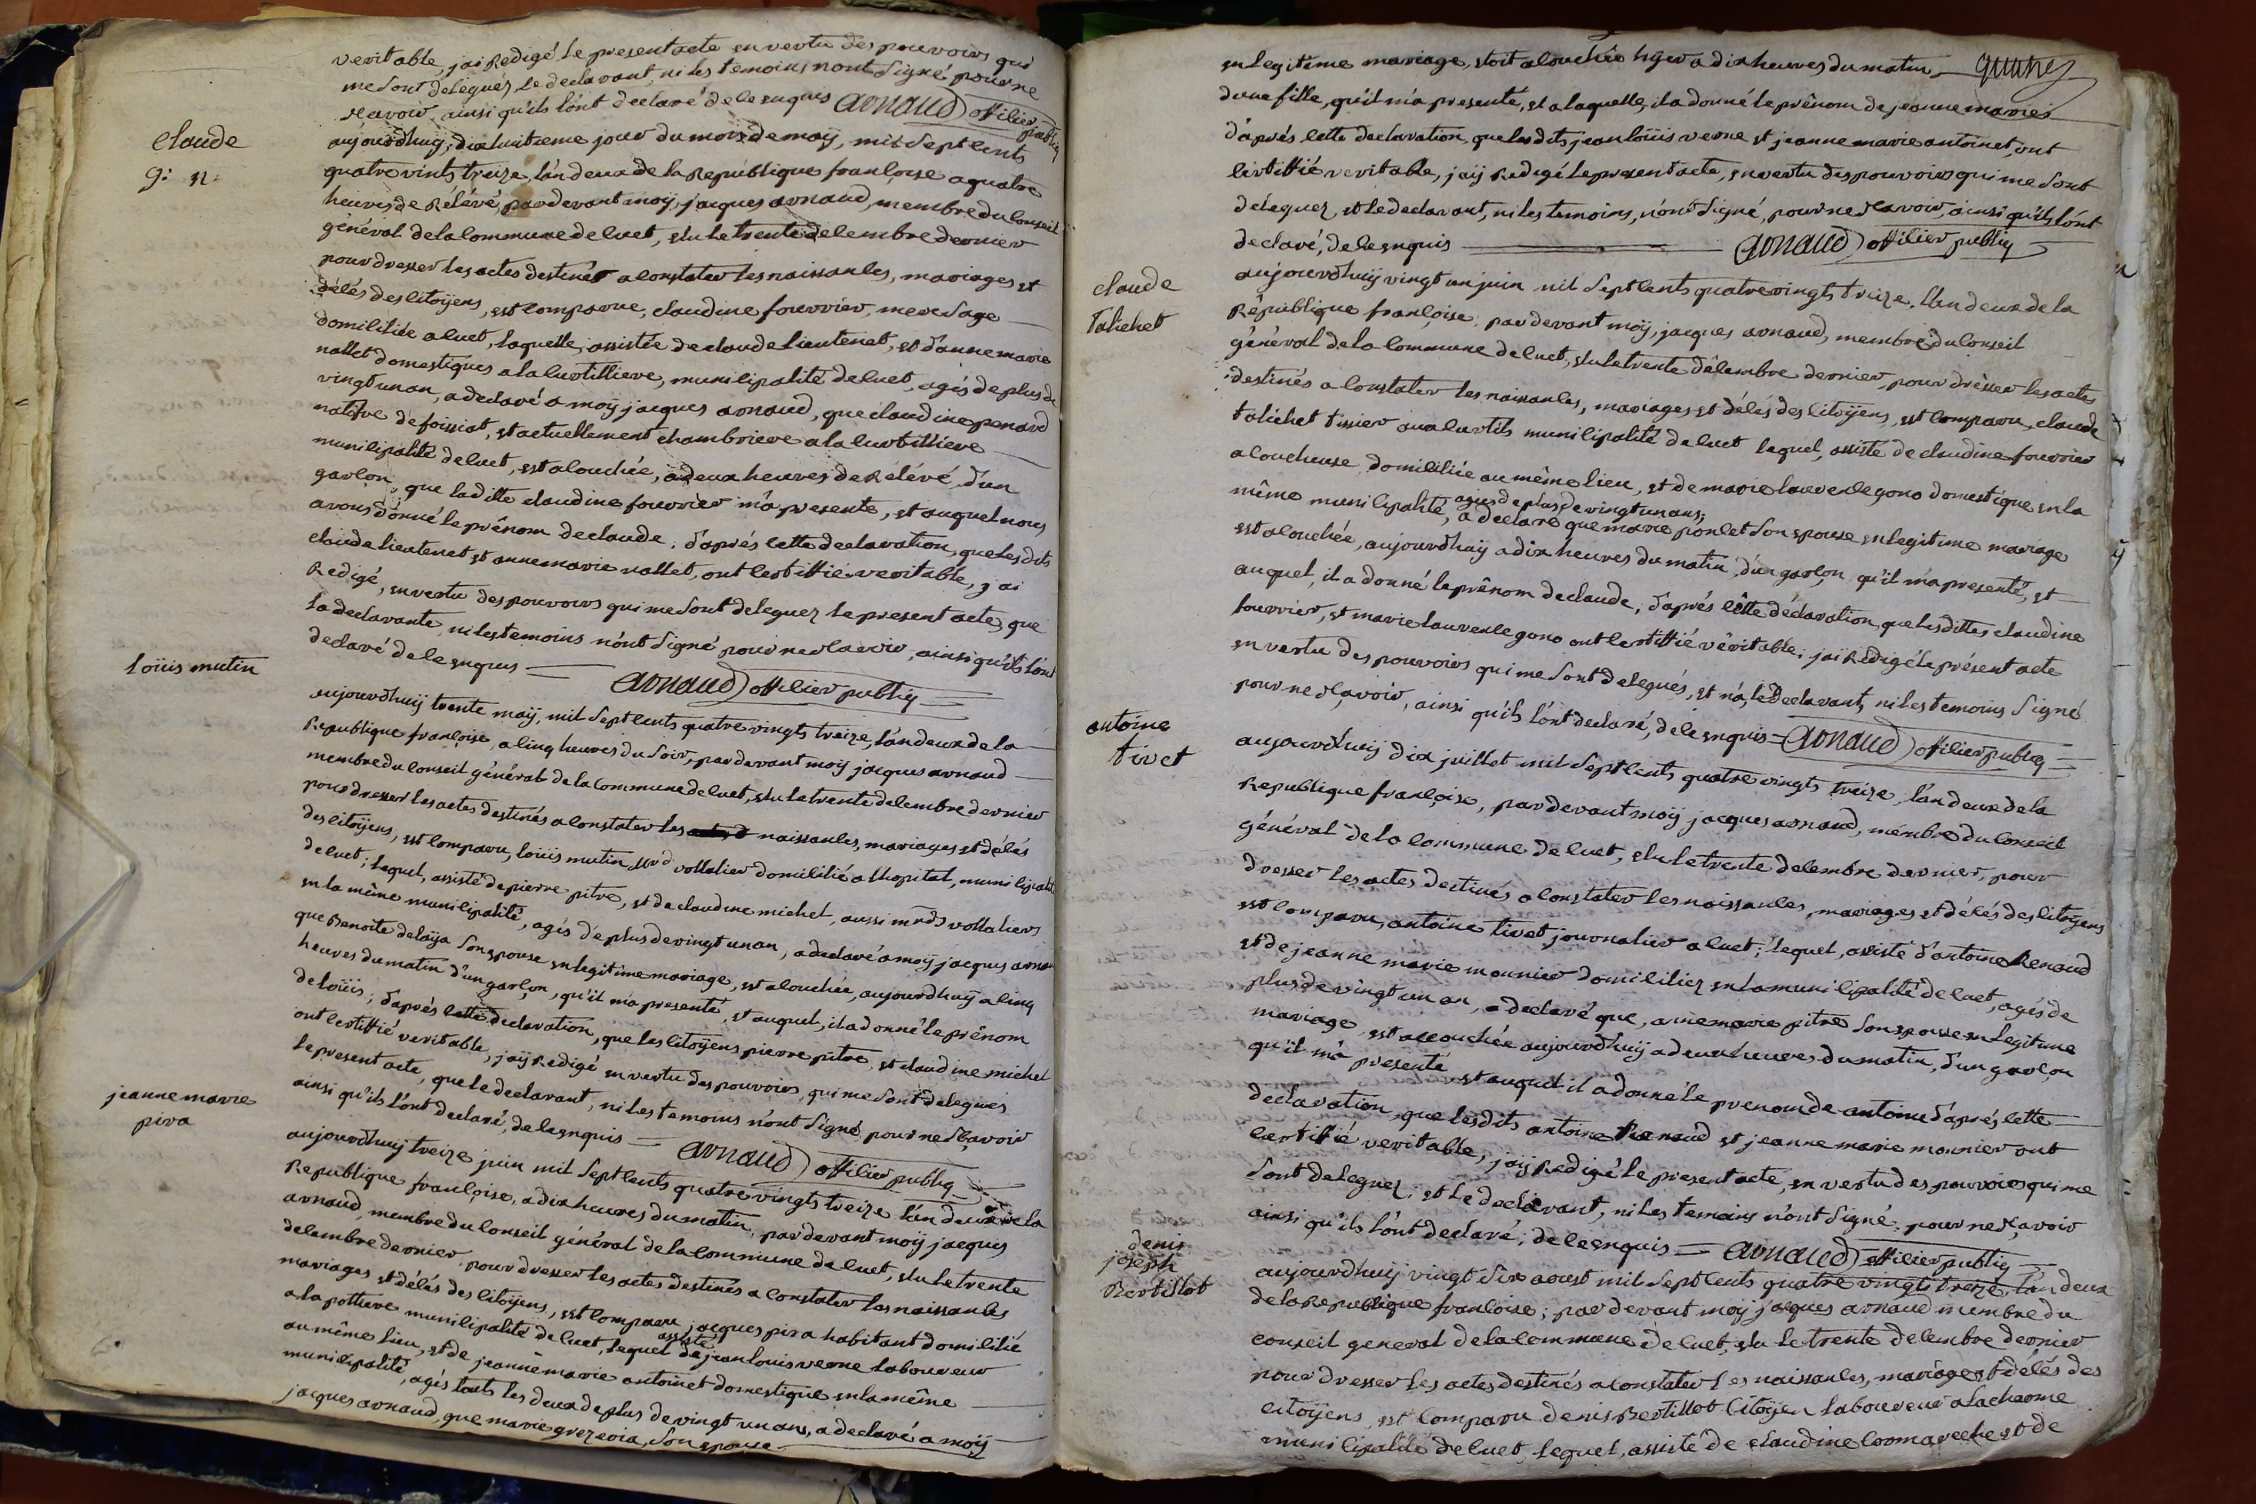 veritable, jai Redigé le present acte en vertu des pouvoirs qui
me sont delegués le declarant, ni les temoins nont signé pour ne
scavoir ainsi qu'ils l'ont declaré de ce enquis arnaud officier public
claude
g: n:
aujourdhuy, dix huitieme jour du mois de may, mil sept cents
quatre vints treize, l'an deux de la République françoise a quatre
heures de Rélévé, pardevant moÿ, jacques arnaud, membre du conseil
général de la commune de cuet, elu le trente decembre dernier
pour dresser les actes destinés a constater les naissances, mariages et
décés des citoÿens, est comparue, claudine fourrier, mere sage
domiciliée a cuet, laquelle, assistée de claude lieutenet, et d'anne marie
nallet domestiques a la curtilliere, municipalité de cuet, agés de plus de
vingt un an, a declaré a moÿ jacques arnaud, que claudine penard
native de foissiat, et actuellement chambriere a la curtilliere
municipalité de cuet, est acouchée, a deux heures de Relévé, d'un
garcon, que la ditte claudine fourrier m'a presenté, et auquel nous
avons donné le prénom de claude, d'aprés cette declaration, que les dits
claude lieutenet et anne marie nallet, ont certiffié veritable, j'ai
Redigé, en vertu des pouvoirs qui me sont deleguez le present acte, que
la declarante, ni les temoins n'ont signé pour ne scavoir, ainsi qu'ils l'ont
declaré de ce enquis arnaud officier public
loüis mutin
aujourdhuÿ trente maÿ, mil sept cents quatre vingts treize, l'an deux de la
Republique françoise, a cinq heures du soir, par devant moÿ jacques arnaud
membre du conseil général de la commune de cuet, elu le trente decembre dernier
pour dresser les actes destinés a constater les naissances, mariages et décés
des citoÿens, est comparu, loüis mutin, vollalier domicilié a l'hopital, municipalité
de cuet; lequel, assisté de pierre pitre, et de claudine michel, aussi mrds vollaliers
en la même municipalité, agés de plus de vingt un an, a declaré a moÿ jacques arnau
que Benoite delaÿa son epouse en legitime mariage, est acouchée, aujourdhuÿ a cinq
heures du matin d'un garçon, qu'il m'a presenté, et auquel, il a donné le prénom
de loüis; d'aprés cette declaration, que les citoÿens pierre pitre, et claudine michel
ont certiffié veritable, jaÿ Redigé en vertu des pouvoirs, qui me sont delegues
le present acte, que le declarant, ni les temoins n'ont signé, pour ne scavoir
ainsi qu'ils l'ont declaré, de ce enquis arnaud officier public
jeanne marie
pira
aujourdhuÿ treize juin mil sept cents quatre vingts treize l'an deux de la
Republique françoise, a dix heures du matin, par devant moÿ jacques
arnaud, membre du conseil général de la commune de cuet, elu le trente
decembre dernier, pour dresser les actes destinés a constater les naissances
mariages et décés des citoÿens, est comparu, jacques pira habitant domicilié
a la pottiere municipalité de cuet, lequel assisté de jean louis verne laboureur
au même lieu, et de jeanne marie antoinet domestique en la même
municipalité, agés touts les deux de plus de vingt un ans, a declaré a moÿ
jacques arnaud, que marie son epouse
en legitime mariage, etoit acouchée hÿer a dix heures du matin
d'une fille, qu'il m'a presenté, et a laquelle, il a donné le prénom de jeanne marie;
d'aprés cette declaration, que les dits jean loüis verne et jeanne marie antoinet, ont
certiffié veritable, jaÿ Redigé le present acte, en vertu des pouvoirs qui me sont
deleguez, et le declarant, ni les temoins, n'ont signé, pour ne scavoir, ainsi qu'ils l'ont
declaré, de ce enquis arnaud officier public
claude
talichet
aujourdhuÿ vingt un juin mil sept cents quatre vingts treize. l'an deux de la
République françoise, par devant moÿ, jacques arnaud, membre du conseil
général de la commune de cuet, elu le trente decembre dernier, pour dresser les actes
destinés a constater les naissances, mariages et décés des citoÿens, est comparu, claude
talichet tissier aux curtils municipalité de cuet lequel, assisté de claudine fourrier
acoucheuse, domiciliée au même lieu, et de marie domestique en la
même municipalité, agés de plus de vingt un ans; a declaré que marie poncet son epouse en legitime mariage
est acouchée, aujourdhuÿ a dix heures du matin, d'un garçon qu'il m'a presenté, et
auquel, il a donné le prénom de claude, d'aprés cette déclaration, que les dittes claudine
fourrier, et marie ont certiffié véritable; jaÿ Redigé le présent acte
en vertu des pouvoirs qui me sont delegués, et n'a, le Declarant, ni les temoins signé
pour ne scavoir, ainsi qu'ils l'ont declaré, de ce enquis arnaud officier public
antoine
tivet
aujourdhuÿ dix juillet mil sept cents quatre vingts treize, l'an deux de la
Republique françoise, par devant moÿ jacques arnaud, membre du conseil
général de la commune de cuet, elu le trente decembre dernier, pour
dresser les actes destinés a constater les naissances, mariages et décés des citoÿens
est comparu, antoine tivet journalier a cuet; lequel, assisté d'antoine Renaud
et de jeanne marie mounier domiciliez en la municipalité de cuet, agés de
plus de vingt un an, a declaré que, anne marie pitre son epouse en legitime
mariage, est accouchée aujourdhuÿ a deux heures du matin, d'un garcon
qu'il m'a presenté et auquel il a donné le prenom de antoine d'aprés cette
declaration, que les dits antoine Renaud et jeanne marie mounier ont
certiffié veritable, jaÿ Redigé le present acte, en vertu des pouvoirs qui me
sont deleguez; et le declarant, ni les temoins n'ont signé, pour ne scavoir
ainsi qu'ils l'ont declaré; de ce enquis arnaud officier public
denis
joseph
Bertillot
aujourdhuÿ vingt six aoust mil sept cents quatre vingts treize, l'an deux
de la Republique françoise; par devant moÿ jacques arnaud membre du
conseil general de la commune de cuet, elu le trente decembre dernier
pour dresser les actes destinés a constater les naissances, mariages et décés des
citoÿens, est comparu denis Bertillot citoÿen laboureur a la charme
municipalité de cuet, lequel, assisté de claudine et de